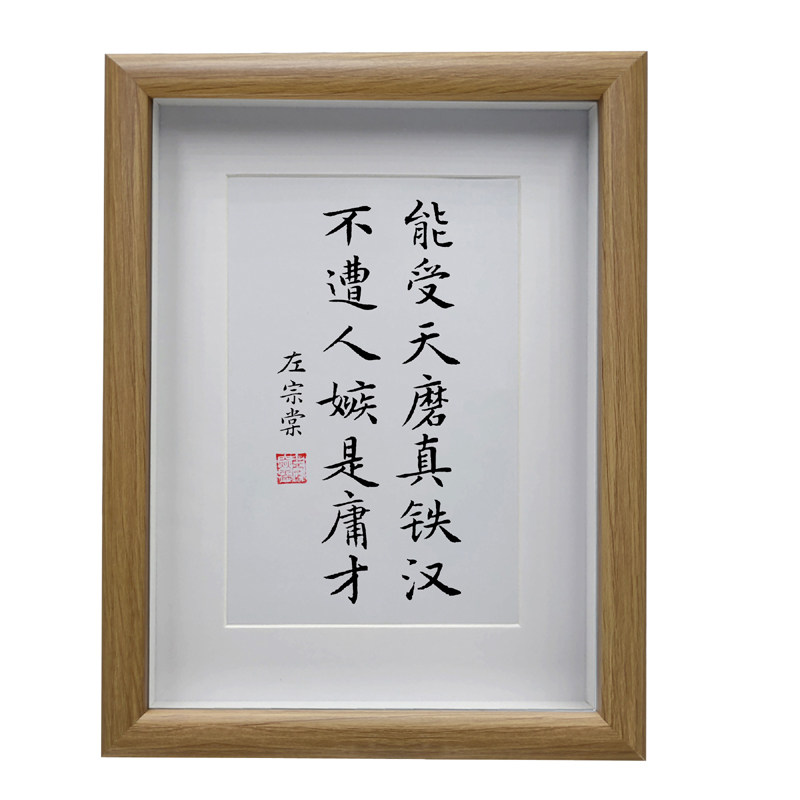 能受天磨真铁汉
不遭人嫉是庸才
左宗棠